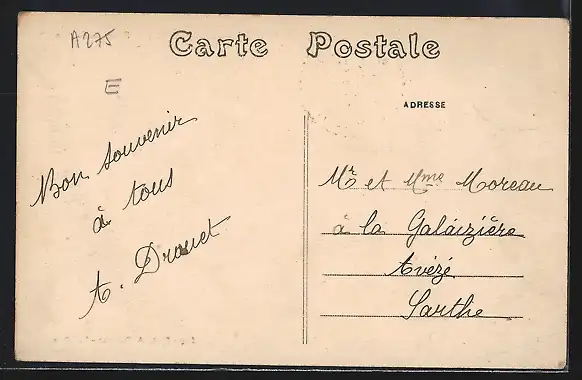 A275
Carte Postale
E
ADRESSE
Bon souvenir
à tous
A. Drouet
Mr et Mme Moreau
à la Galaizière
Avézé
Sarthe